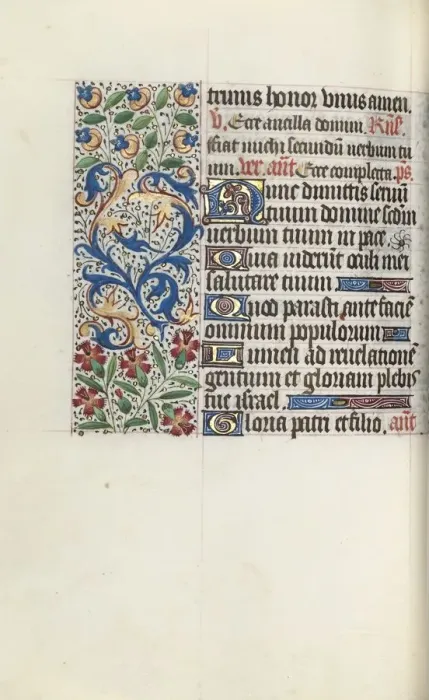 trinus honor vnus amen.
V. Ecce ancilla domini. Rūs.
ffiat michi secundū uerbum tu
um. ver. añt Ecce completa. ps.
Nunc dimittis seruū
tuum domine scdm
uerbum tuum in pace.
Quia uiderūt oculi mei
salutare tuum
Quod parasti ante faciē
omnium populorum
Lumen ad reuelationē
gentium et gloriam plebis
tue israel.
Gloria patri et filio. añt